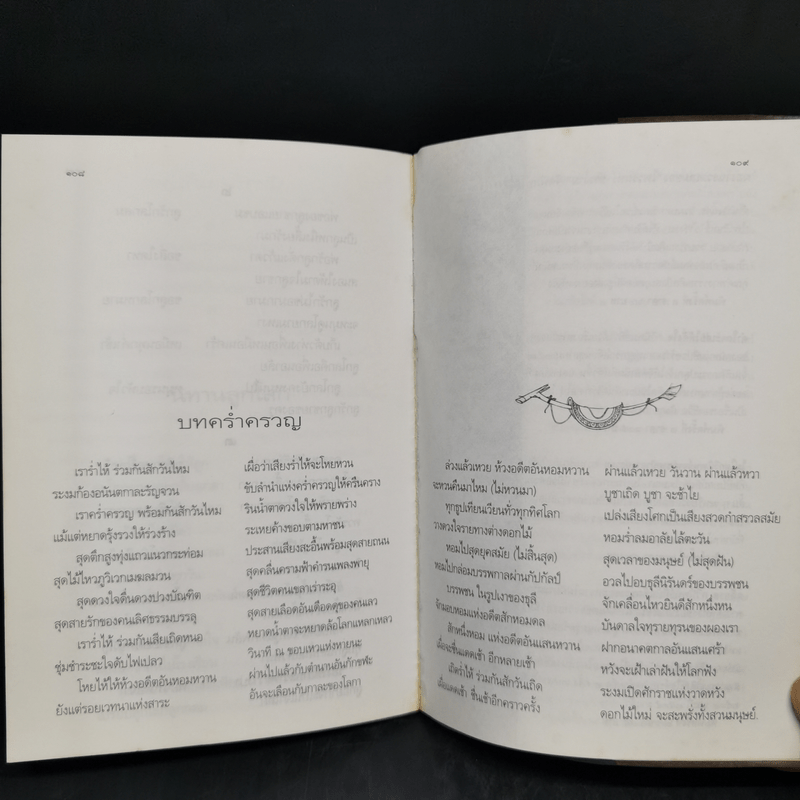 ๑๐๘
บทคร่ำครวญ
เราร่ำไห้ ร่วมกันสักวันไหม เผื่อว่าเสียงร่ำไห้จะโหยหวน
ระงมก้องอนันตกาละรัญจวน ขับลำนำแห่งคร่ำครวญให้ครืนคราง
เราคร่ำครวญ พร้อมกันสักวันไหม รินน้ำตาดวงใจให้พรายพร่าง
แม้แต่หยาดรุ้งรวงให้ร่วงร้าง ระเหยค้างขอบตามหาชน
สุดตึกสูงทุ่งแถวแนวกระท่อม ประสานเสียงสะอื้นพร้อมสุดสายถนน
สุดไม้ไหวภูวิเวกเมฆลมวน สุดคลื่นครามฟ้าคำรนเพลงพายุ
สุดดวงใจตื่นดวงปวงบัณฑิต สุดชีวิตคนเขลาเร่าระอุ
สุดสายรักของคนเลิศธรรมบรรลุ สุดสายเลือดอันเดือดดุของคนเลว
เราร่ำไห้ ร่วมกันเสียเถิดหนอ หยาดน้ำตาจะหยาดล้อโลกแหลกเหลว
ชุ่มชำระชะใจดับไฟเปลว วินาที ณ ขอบเหวแห่งหายนะ
โหยไห้ให้ห้วงอดีตอันหอมหวาน ผ่านไปแล้วกับตำนานอันกักขฬะ
ยังแต่รอยเวทนาแห่งสาระ อันจะเลือนกับกาละของโลกา
๑๐๙
ล่วงแล้วเหวย ห้วงอดีตอันหอมหวาน ผ่านแล้วเหวย วันวาน ผ่านแล้วหวา
จะหวนคืนมาไหม (ไม่หวนมา) บูชาเถิด บูชา จะช้าไย
ทุกธูปเทียนเวียนทั่วทุกทิศโลก เปล่งเสียงโศกเป็นเสียงสวดกำสรวลสมัย
วางดวงใจรายทางต่างดอกไม้ หอมร่ำลมอาลัยไล้ตะวัน
หอมไปสุดยุคสมัย (ไม่สิ้นสุด) สุดเวลาของมนุษย์ (ไม่สุดฝัน)
หอมไปกล่อมบรรพกาลผ่านกัปกัลป์ อวลไปอบธุลีนิรันดร์ของบรรพชน
บรรพชน ในรูปเงาของธุลี จักเคลื่อนไหวยินดีสักหนึ่งหน
จักมอบหอมแห่งอดีตสักหอมดล บันดาลใจทุรายทุรนของผองเรา
สักหนึ่งหอม แห่งอดีตอันแสนหวาน ฝากอนาคตกาลอันแสนเศร้า
เมื่อจะชื่นแดดเช้า อีกหลายเช้า หวังจะเฝ้าเล่าฝันให้โลกฟัง
เถิดร่ำไห้ ร่วมกันสักวันเถิด ระงมเปิดศักราชแห่งวาดหวัง
เมื่อแดดเช้า ชื่นเช้าอีกคราวครั้ง ดอกไม้ใหม่ จะสะพรั่งทั้งสวนมนุษย์.